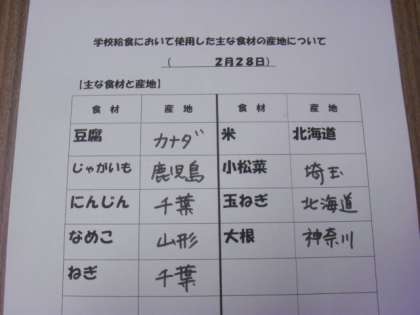 学校給食において使用した主な食材の産地について
( 2月28日)
【主な食材と産地】
食材 産地 食材 産地
豆腐 カナダ 米 北海道
じゃがいも 鹿児島 小松菜 埼玉
にんじん 千葉 玉ねぎ 北海道
なめこ 山形 大根 神奈川
ねぎ 千葉